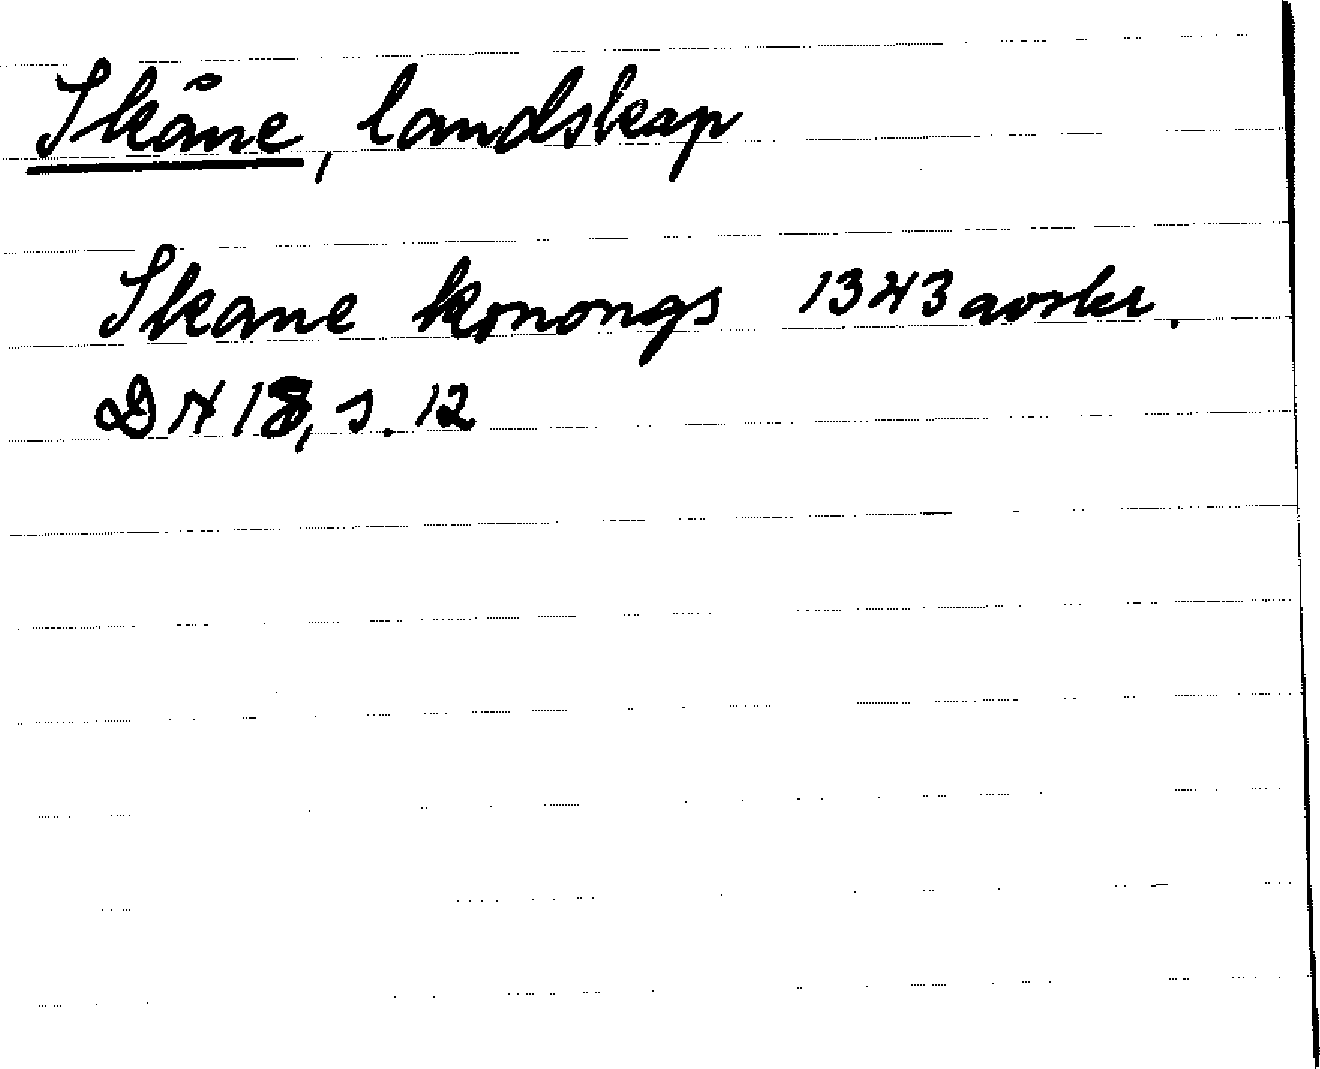 Skåne, landskap
Skane konongs 1343 avskr.
DN 18, s. 12